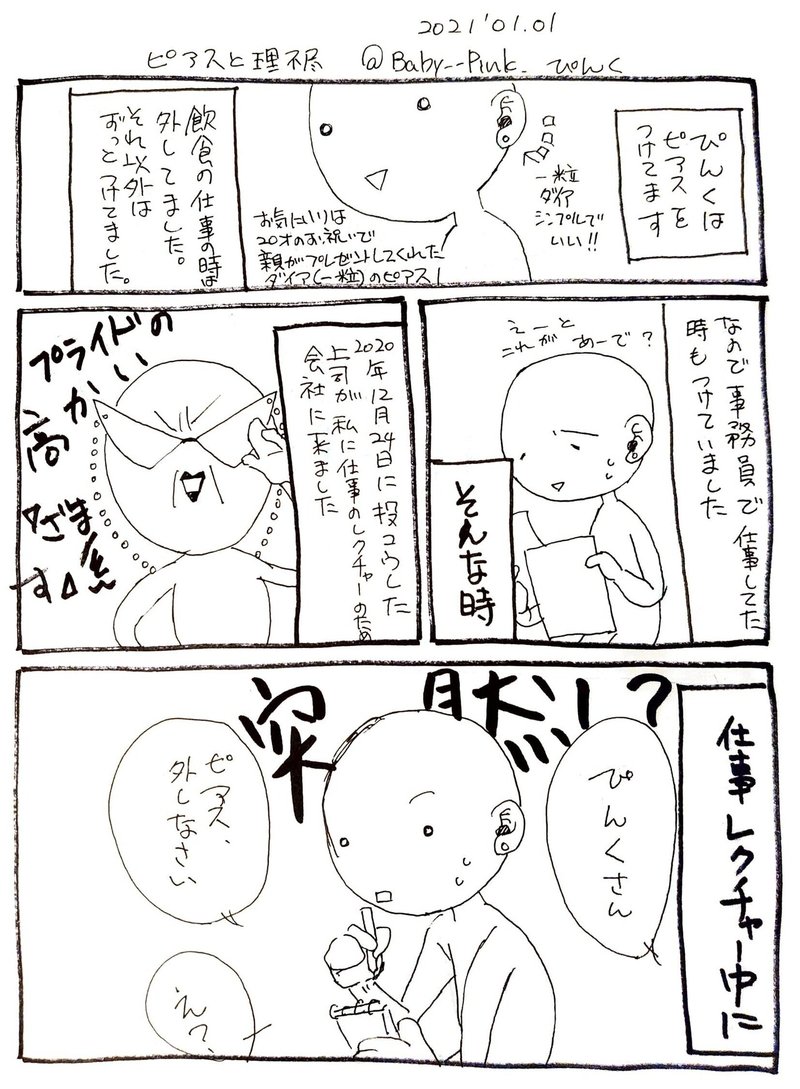 2021'01.01
ピアスと理不尽 @Baby--Pink_ ぴんく
ぴんくは
ピアスを
つけてます
一粒
ダイア
シンプルで
いい!!
お気にいりは
20才のお祝いで
親がプレゼントしてくれた
ダイア(一粒)のピアス!
飲食の仕事の時は
外してました。
それ以外は
ずっとつけてました。
なので事務員で仕事してた
時もつけていました
えーと
これが あーで?
そんな時
2020年12月24日に投コウした
上司が私に仕事のレクチャーのため
会社に来ました
プライドの
高かい
ざます
仕事レクチャー中に
突然!?
ぴんくさん
ピアス、
外しなさい
え?、